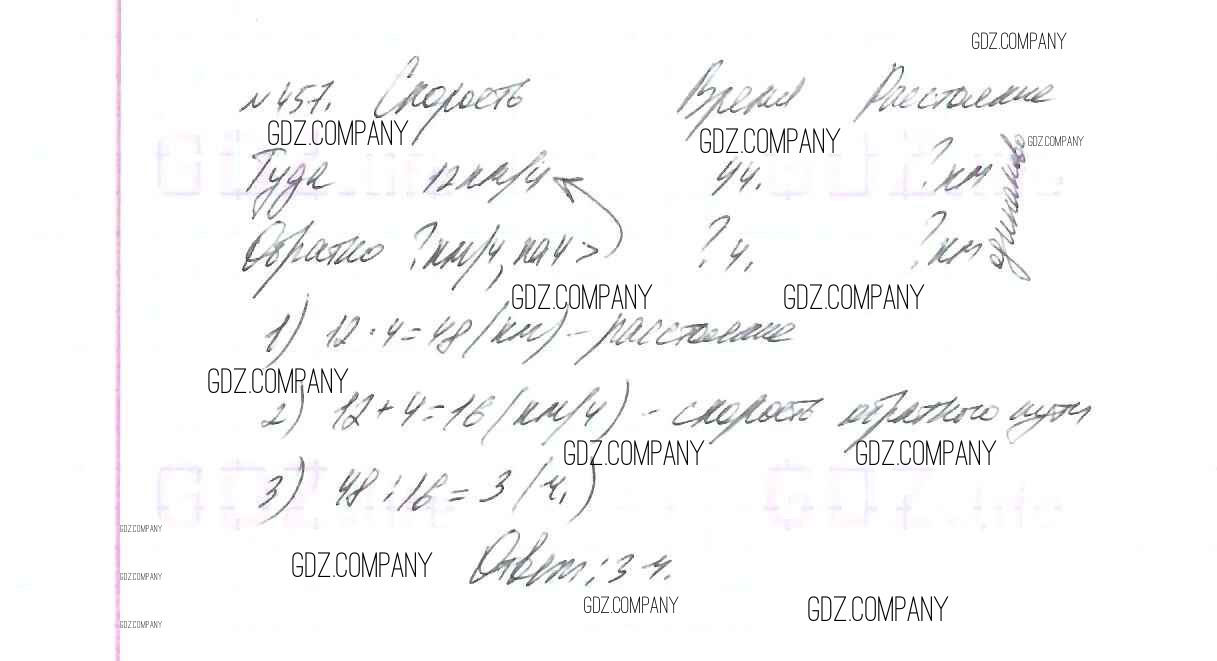 GDZ.COMPANY
№457. Скорость Время Расстояние
GDZ.COMPANY GDZ.COMPANY GDZ.COMPANY
Туда 12 км/ч 4 ч. ? км одинаково
Обратно ? км/ч, на 4 > ? ч. ? км
GDZ.COMPANY GDZ.COMPANY
1) 12 · 4 = 48 (км) – расстояние
GDZ.COMPANY
2) 12 + 4 = 16 (км/ч) – скорость обратного пути
GDZ.COMPANY GDZ.COMPANY
3) 48 : 16 = 3 (ч.)
GDZ.COMPANY
GDZ.COMPANY Ответ: 3 ч.
GDZ.COMPANY
GDZ.COMPANY GDZ.COMPANY
GDZ.COMPANY